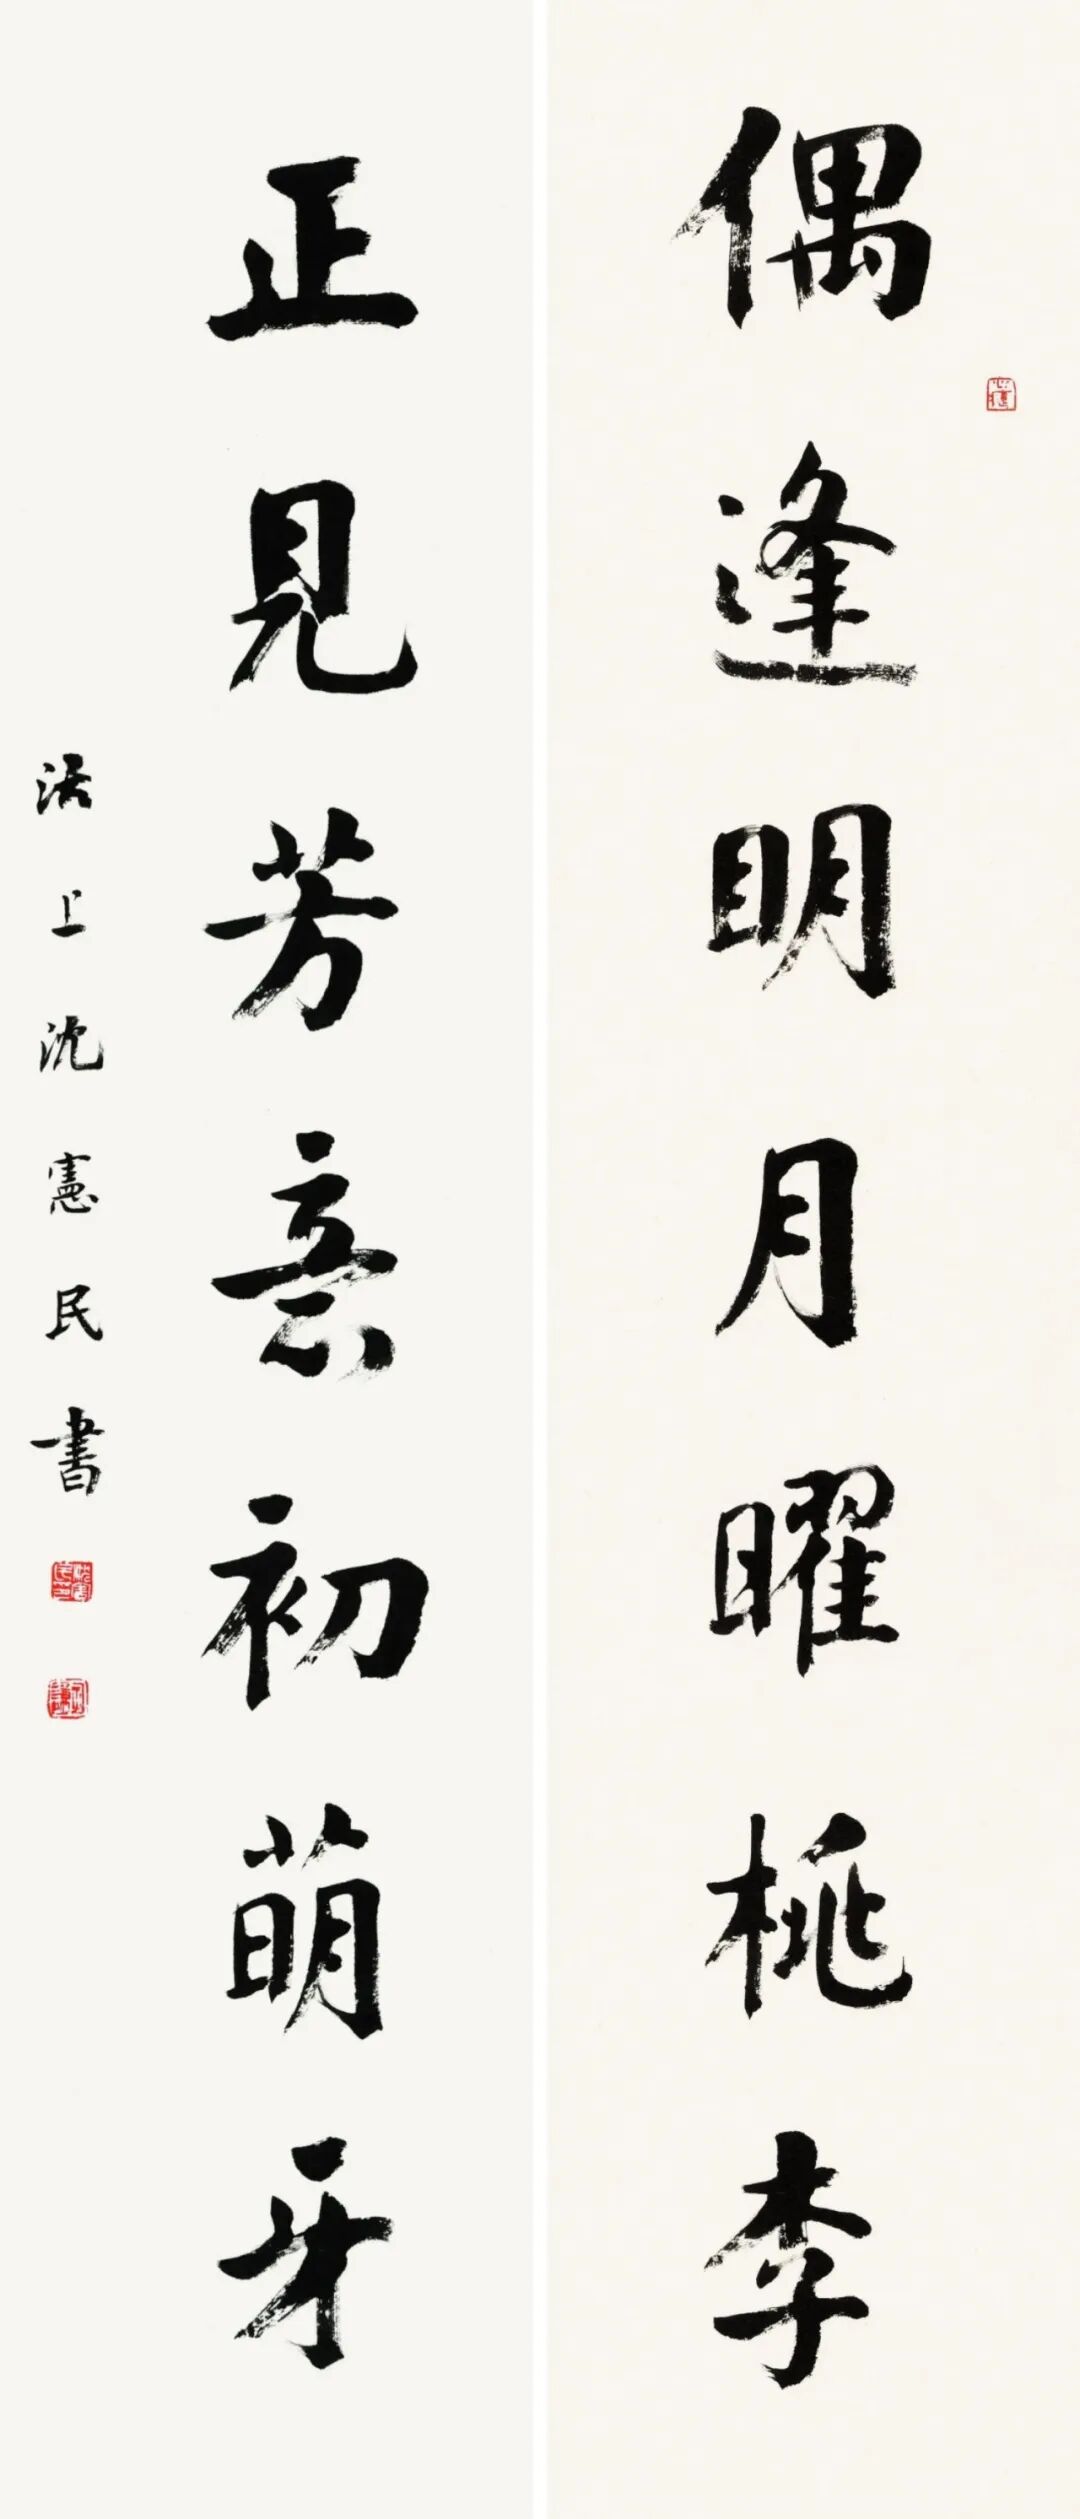 偶逢明月曜桃李
正見芳意初萌牙
沽上沈憲民書